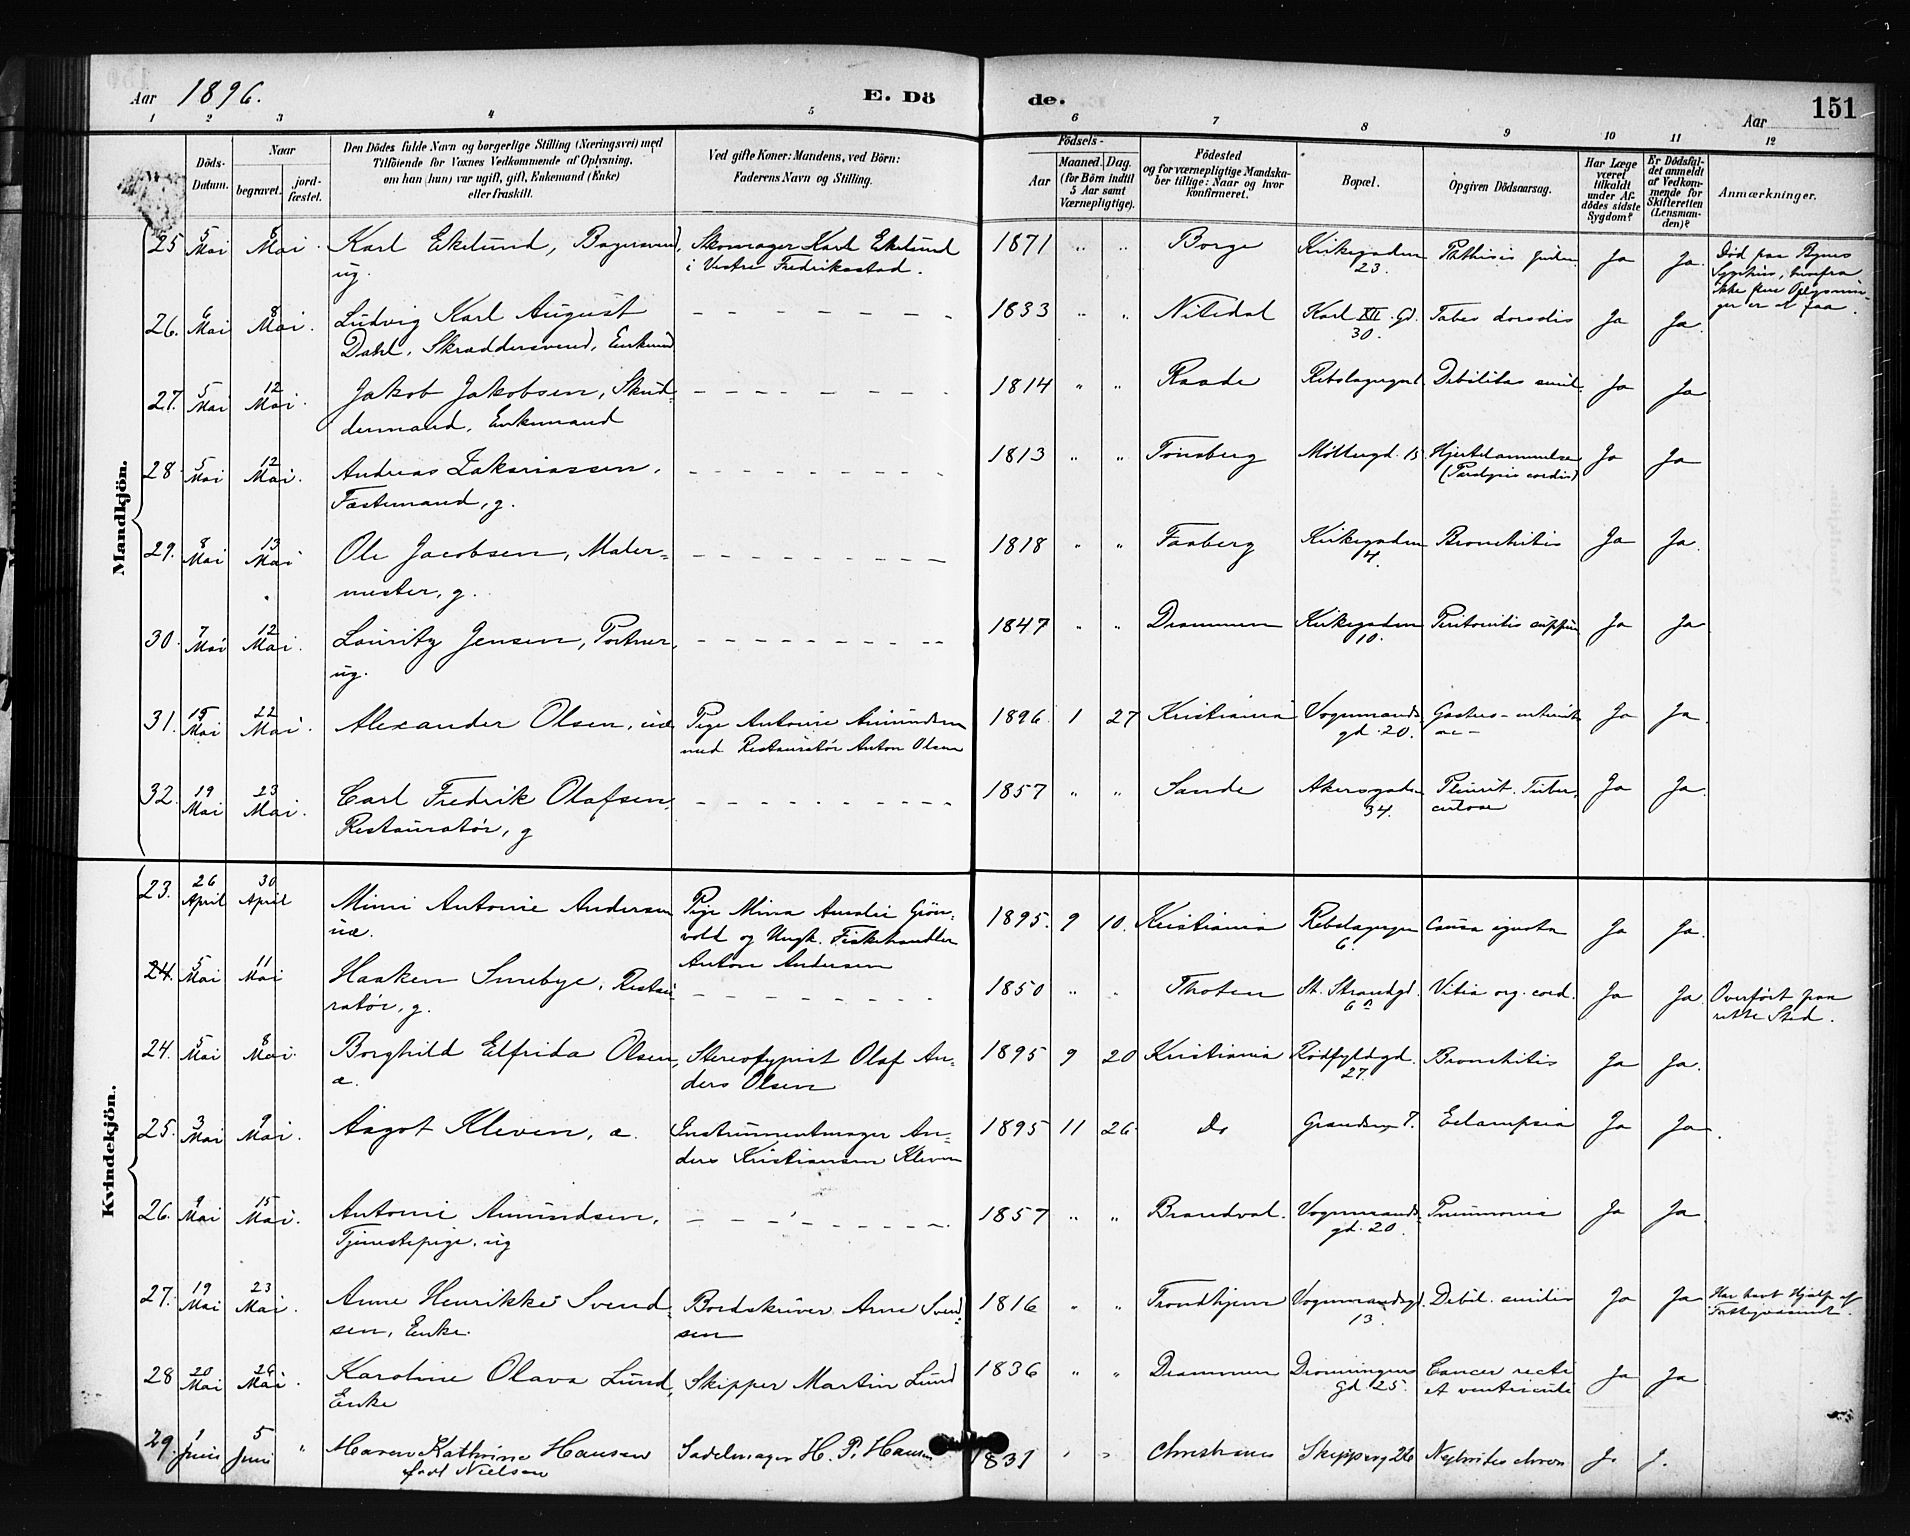 Aar 1896.
E. Dö de.
Aar
151
1 2 3 4 5 6 7 8 9 10 11 12
Döds-Datum.
Naar
begravet.
jord-fæstet.
Den Dödes fulde Navn og borgerlige Stilling (Næringsvei) med
Tilföiende for Voxnes Vedkommende af Oplysning,
om han (hun) var ugift, gift, Enkemand (Enke)
eller fraskilt.
Ved gifte Koner: Mandens, ved Börn:
Faderens Navn og Stilling.
Födsels-
Aar
Maaned. Dag.
(for Börn indtil
5 Aar samt
Værnepligtige).
Födested
og for værnepligtige Mandska-
ber tillige: Naar og hvor
konfirmeret.
Bopæl.
Opgiven Dödsaarsag.
Har Læge
været
tilkaldt
under Af-
dödes sidste
Sygdom?
Er Dödsfal-
det anmeldt
af Vedkom-
mende for
Skifteretten
(Lensman-
den)?
Anmærkninger.
Mandkjön.
25 5 Mai 8 Mai. Karl Ekelund, Bagersvend, Skomager Karl Ekelund 1871 " " Borge Kirkegaden 23. Phthisis Ja Ja. Død paa Byens
ug. i Vestre Fredriksstad. Sygehus, hvorfra
ikke flere Oplysnin-
ger er at faa.
26. 6 Mai 8 Mai. Ludvig Karl August – – – 1833 " " Nitedal Karl XII. Gd. 30. Tabes dorsalis Ja Ja.
Dahl, Skræddersvend, Enkemd
27. 5 Mai 12 Mai. Jakob Jakobsen, Skud- – – – 1814 " " Raade Rebslagergd Debilitas senil. Ja Ja
dermand, Enkemand
28. 5 Mai 12 Mai. Andreas Zakariassen, – – – 1813 " " Tønsberg Møllergd. 15 Hjertelammelse Ja Ja
Fæstemand, g. (Paralysis cordis)
29. 8 Mai 13 Mai Ole Jacobsen, Maler- – – – 1818 " " Faaberg Kirkegaden 4. Bronchitis Ja Ja.
mester, g.
30. 7 Mai 12 Mai. Lauritz Jensen, Portner, – – – 1847 " " Drammen Kirkegaden 10. Peritonitis suppur Ja Ja
ug.
31. 15 Mai 22 Mai. Alexander Olsen, uæ Pige Antonie Amundsen 1896. 1 27 Kristiania Vognmands- gd. 20. Gastero-enterit Ja Ja.
med Restauratør Anton Olsen ac–
32. 19 Mai 23 Mai. Carl Fredrik Olafsen, – – – 1857 " " Sande Akersgaden 34. Pleurit. Tuber, Ja Ja.
Restauratør, g culose
Kvindekjön.
23. 26 April 30 April Mimi Antonie Andersen Pige Mina Amalie Grøn- 1895. 9 10. Kristiania Rebslagergn 6. Causa ignota Ja Ja.
uæ. vold og Ungk. Fiskehandler
Anton Andersen
24. 5 Mai 11 Mai Haaken Smebye, Restau – – – 1850 " " Thoten St. Strandgd. 6 a Vitia org. cord. Ja Ja. Overført paa
ratør, g. rette Sted.
24. 5 Mai 8 Mai. Borghild Elfrida Olsen, Stereotypist Olaf An- 1895 9 20 Kristiania Rødfyldgd. 27. Bronchitis Ja Ja.
æ. ders Olsen
25. 3 Mai 9 Mai. Aagot Kleven, æ. Instrumentmager An- 1895 11 26 Do Grændsen 7. Eclampsia Ja Ja.
ders Kristiansen Kleven
26. 9 Mai 15 Mai. Antonie Amundsen, – – – 1857 " " Brandval. Vognmands- gd. 20. Pneumonia Ja Ja
Tjenestepige, ug
27. 19 Mai 23 Mai. Anne Henrikke Svend- Bordskriver Arne Svend- 1816 " " Trondhjem Vognmandsgd. 13. Debil. senilis Ja Ja Har havt Hjælp af
sen, Enke. sen Fattigvæsenet.
28 20 Mai 26 Mai. Karoline Olava Lund, Skipper Martin Lund 1836 " " Drammen Dronningens gd. 25. Cancer recti Ja Ja
Enke et ventriculi
29. 1 Juni 5 Juni " Maren Kathrine Hansen Sadelmager H. P. Hansen 1831 " " Christiania Skipperg 26 Nephritis chron J. J.
født Nielsen